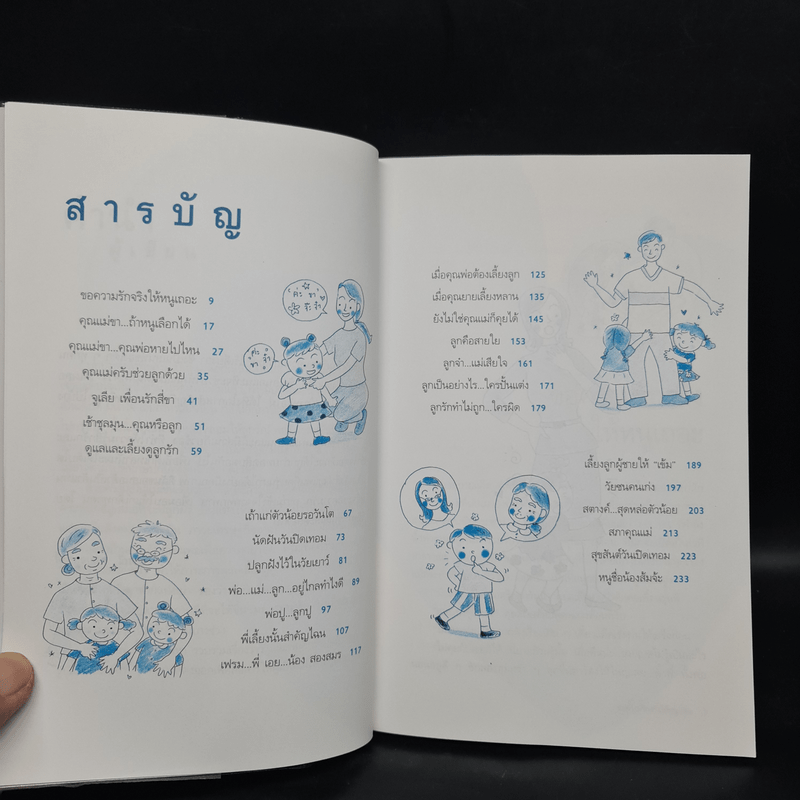 สารบัญ
ขอความรักจริงให้หนูเถอะ 9
คุณแม่ขา...ถ้าหนูเลือกได้ 17
คุณแม่ขา...คุณพ่อหายไปไหน 27
คุณแม่ครับช่วยลูกด้วย 35
จูเลีย เพื่อนรักสี่ขา 41
เช้าชุลมุน...คุณหรือลูก 51
ดูแลและเลี้ยงดูลูกรัก 59
ค่ะ ขา
จ๊ะ จ๋า
เถ้าแก่ตัวน้อยรอวันโต 67
นัดฝันวันปิดเทอม 73
ปลูกฝังไว้ในวัยเยาว์ 81
พ่อ...แม่...ลูก...อยู่ไกลทำไงดี 89
พ่อปู...ลูกปู 97
พี่เลี้ยงนั้นสำคัญไฉน 107
เฟรม...พี่ เอย...น้อง สองสมร 117
เมื่อคุณพ่อต้องเลี้ยงลูก 125
เมื่อคุณยายเลี้ยงหลาน 135
ยังไม่ใช่คุณแม่ก็คุยได้ 145
ลูกคือสายใย 153
ลูกจ๋า...แม่เสียใจ 161
ลูกเป็นอย่างไร...ใครปั้นแต่ง 171
ลูกรักทำไม่ถูก...ใครผิด 179
เลี้ยงลูกผู้ชายให้ "เข้ม" 189
วัยซนคนเก่ง 197
สตางค์...สุดหล่อตัวน้อย 203
สภาคุณแม่ 213
สุขสันต์วันเปิดเทอม 223
หนูชื่อน้องส้มจ้ะ 233